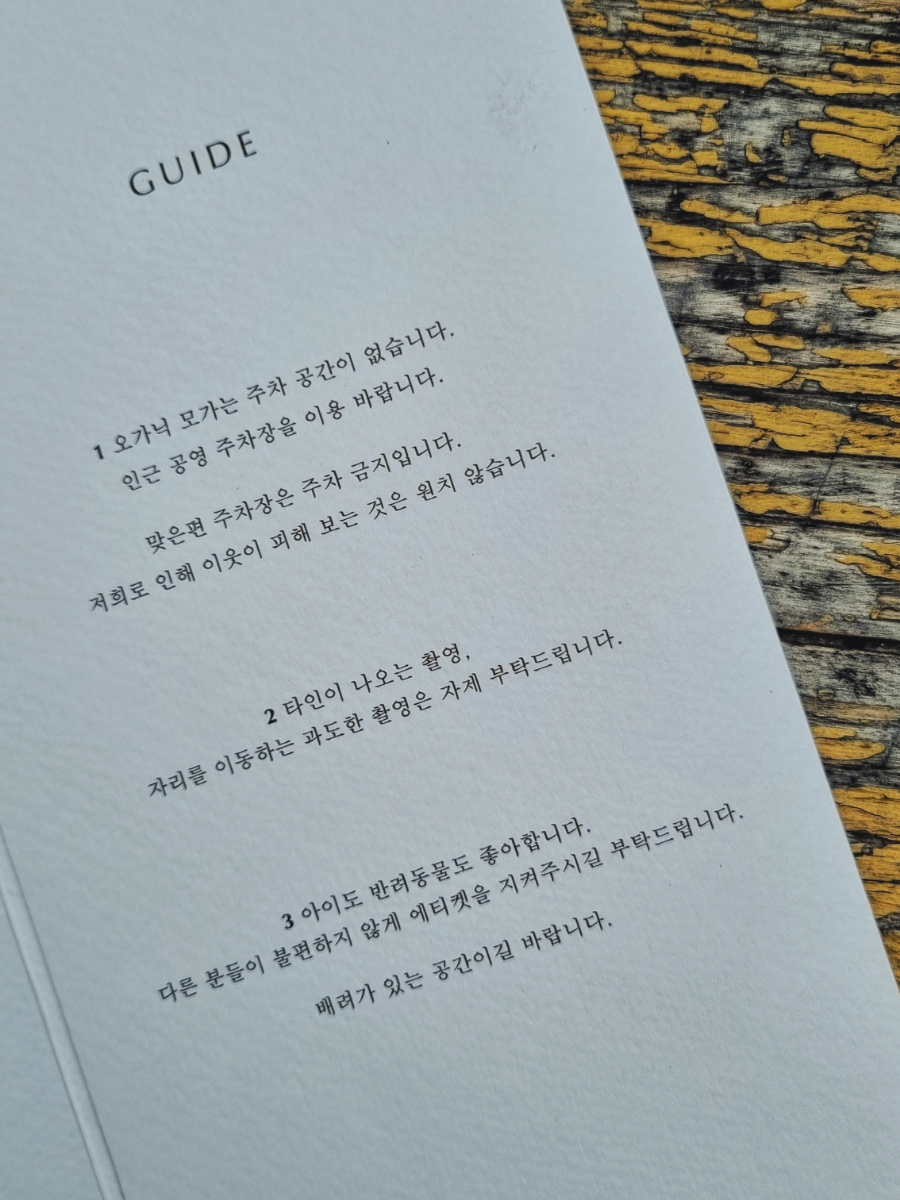 GUIDE
1 오가닉 모가는 주차 공간이 없습니다.
인근 공영 주차장을 이용 바랍니다.
맞은편 주차장은 주차 금지입니다.
저희로 인해 이웃이 피해 보는 것은 원치 않습니다.
2 타인이 나오는 촬영,
자리를 이동하는 과도한 촬영은 자제 부탁드립니다.
3 아이도 반려동물도 좋아합니다.
다른 분들이 불편하지 않게 에티켓을 지켜주시길 부탁드립니다.
배려가 있는 공간이길 바랍니다.